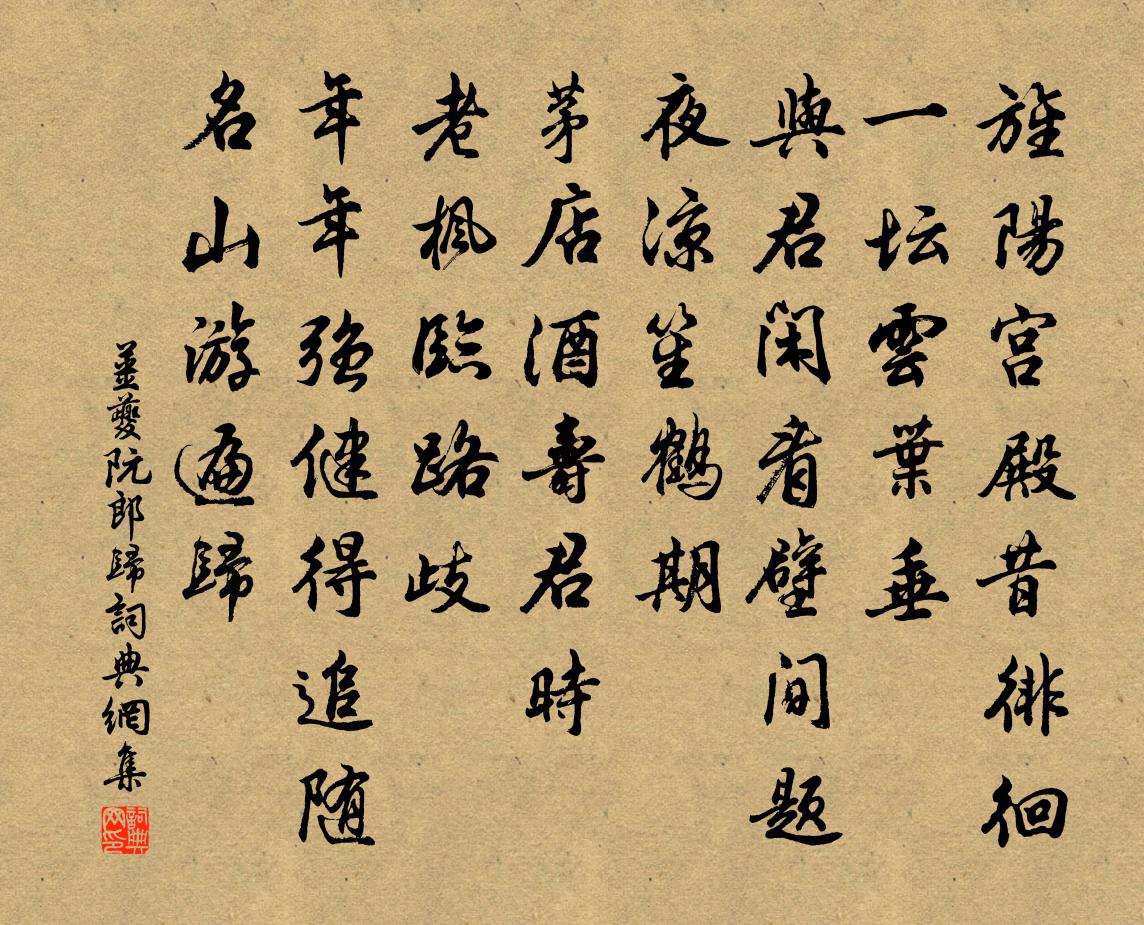 旌陽宮殿昔徘徊
一坛雲葉垂
與君閑看壁間題
夜凉笙鶴期
茅店酒壽君時
老楓臨路歧
年年强健得追随
名山游遍歸
姜夔阮郎歸詞典網集
詞典网印